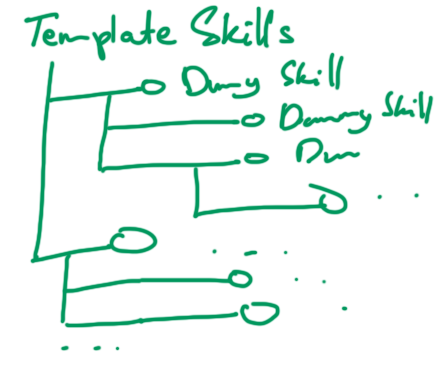 Template Skills
Dumy Skill
Dammy Skill
Dum